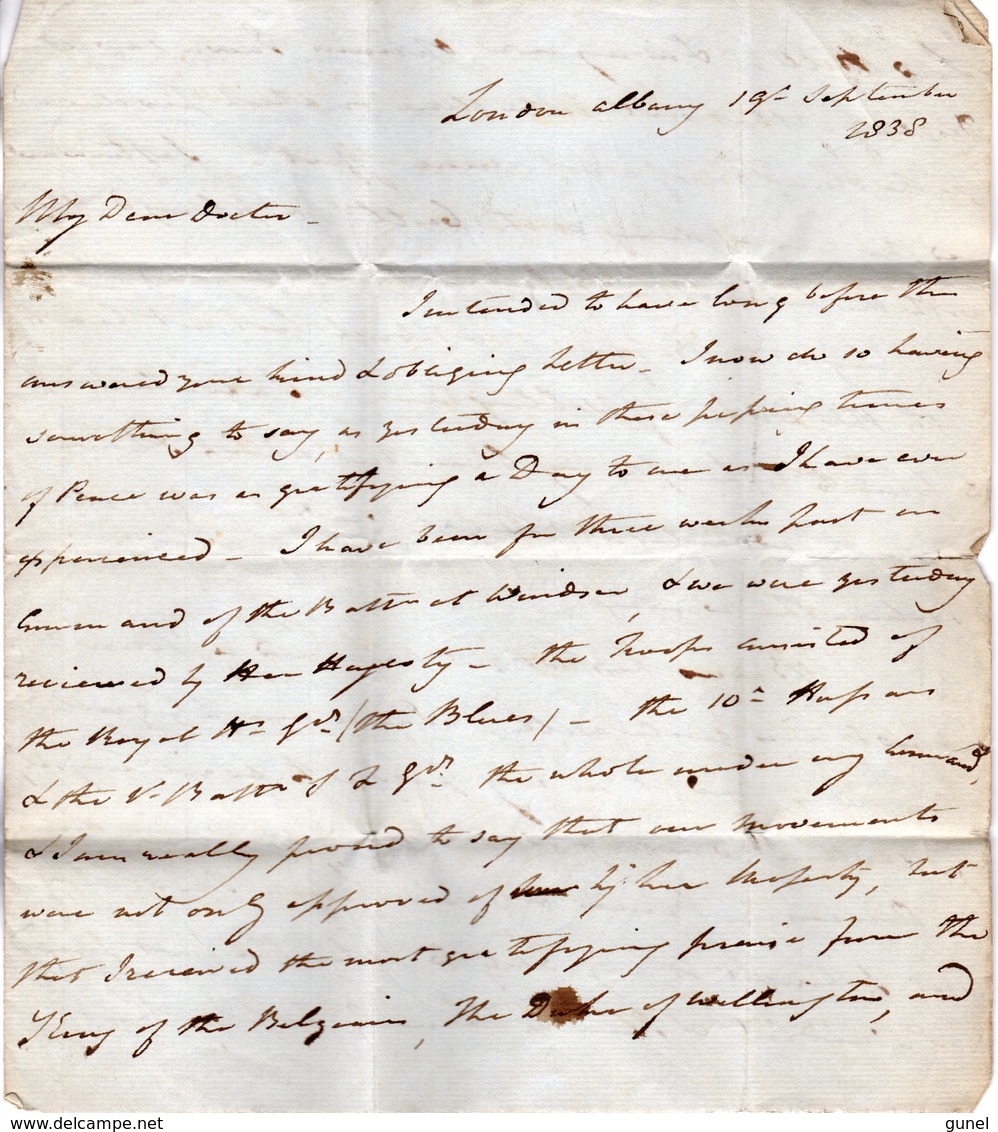 London Albany 19th September
1838
My Dear Doctor -
I intended to have long before this
answered your kind & obliging Letter - I now do so having
something to say, as yesterday in these piping times
of Peace was as gratifying a Day to me as I have ever
experienced - I have been for three weeks past in
Command of the Battn at Windsor, & we were yesterday
reviewed by Her Majesty - the Troops consisted of
the Royal Hs Gds (the Blues) - the 10th Hussars
& the Battn Gds the whole under my Command,
& I am really proud to say that our movements
were not only approved of by her Majesty, but
that I received the most gratifying praise from the
King of the Belgians, The Duke of Wellington, and
delcampe.net
gunel